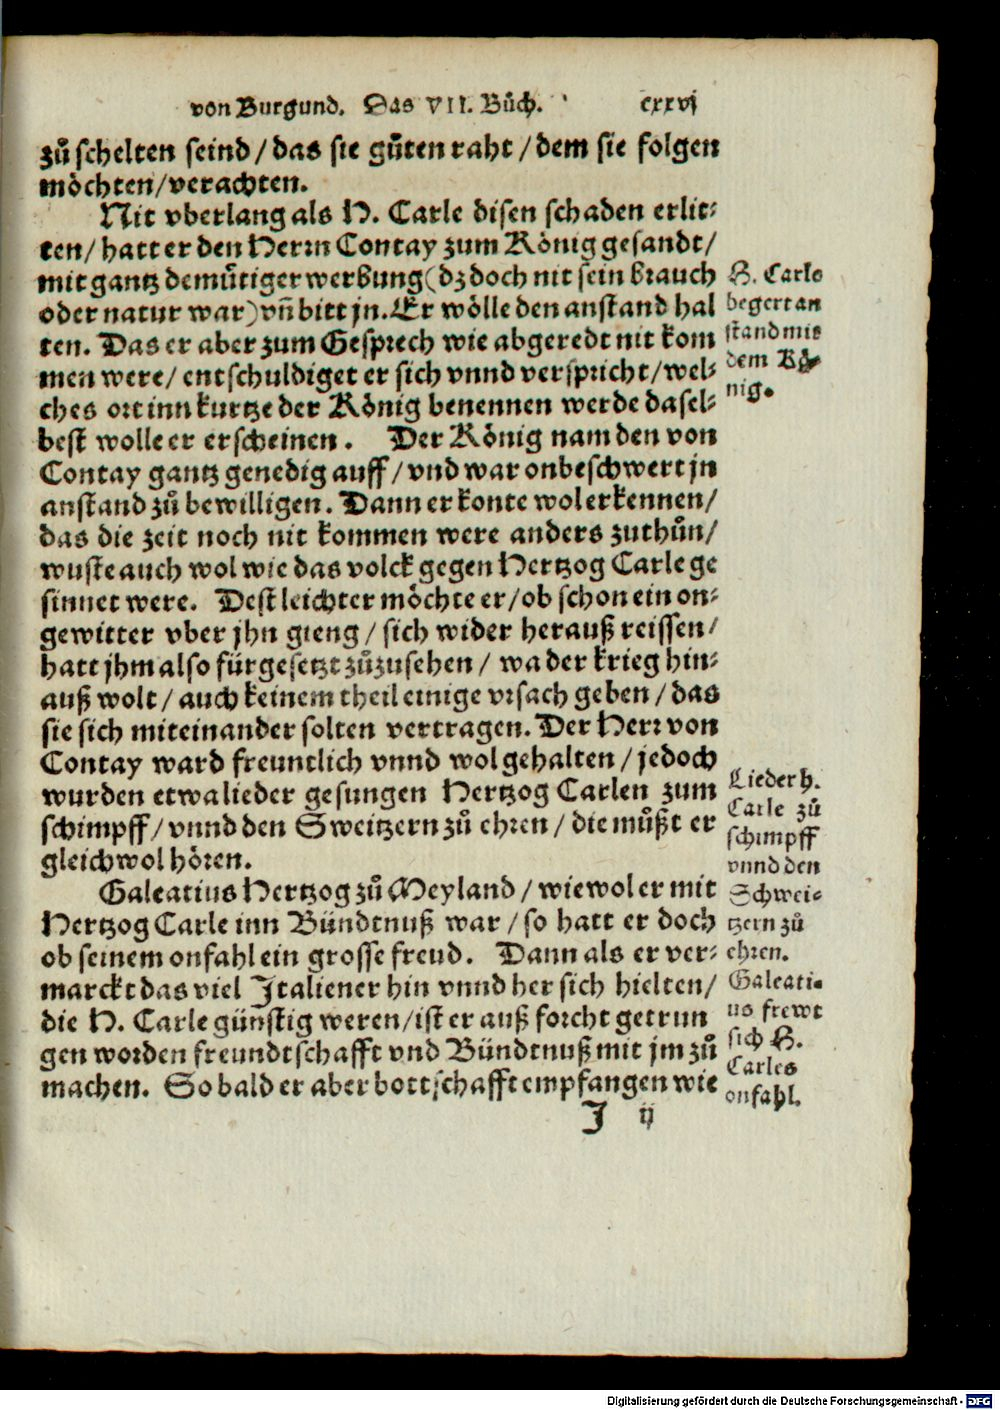 von Burgund. Das VII. Bůch. cxxvj
zů schelten seind / das sie gůten raht / dem sie folgen
möchten / verachten.
Nit vberlang als H. Carle disen schaden erlit-
ten / hatt er den Herrn Contay zum König gesandt /
mit gantz demůtiger werbung (dz doch nit sein brauch
oder natur war) vñ bitt jn. Er wölle den anstand hal
ten. Das er aber zum Gesprech wie abgeredt nit kom
men were / entschuldiget er sich vnnd verspricht / wel-
ches ort inn kurtze der König benennen werde dasel-
best wolle er erscheinen. Der König nam den von
Contay gantz genedig auff / vnd war onbeschwert jn
anstand zů bewilligen. Dann er konte wol erkennen /
das die zeit noch nit kommen were anders zuthůn /
wuste auch wol wie das volck gegen Hertzog Carle ge
sinnet were. Dest leichter möchte er / ob schon ein on-
gewitter vber jhn gieng / sich wider herauß reissen /
hatt jhm also fürgesetzt zůzusehen / wa der krieg hin-
auß wolt / auch keinem theil einige vrsach geben / das
sie sich miteinander solten vertragen. Der Herr von
Contay ward freuntlich vnnd wol gehalten / jedoch
wurden etwa lieder gesungen Hertzog Carlen zum
schimpff / vnnd den Sweitzern zů ehren / die můßt er
gleichwol hören.
Galeatius Hertzog zů Meyland / wiewol er mit
Hertzog Carle inn Bündtnuß war / so hatt er doch
ob seinem onfahl ein grosse freud. Dann als er ver-
marckt das viel Italiener hin vnnd her sich hielten /
die H. Carle günstig weren / ist er auß forcht getrun
gen worden freundtschafft vnd Bündtnuß mit jm zů
machen. So bald er aber bottschafft empfangen wie
J ij
H. Carle
begert an
stand mit
dem Kö-
nig.
Lieder h.
Carle zů
schimpff
vnnd den
Schwei-
tzern zů
ehren.
Galeati-
us frewt
sich H.
Carles
onfahl.
Digitalisierung gefördert durch die Deutsche Forschungsgemeinschaft - DFG